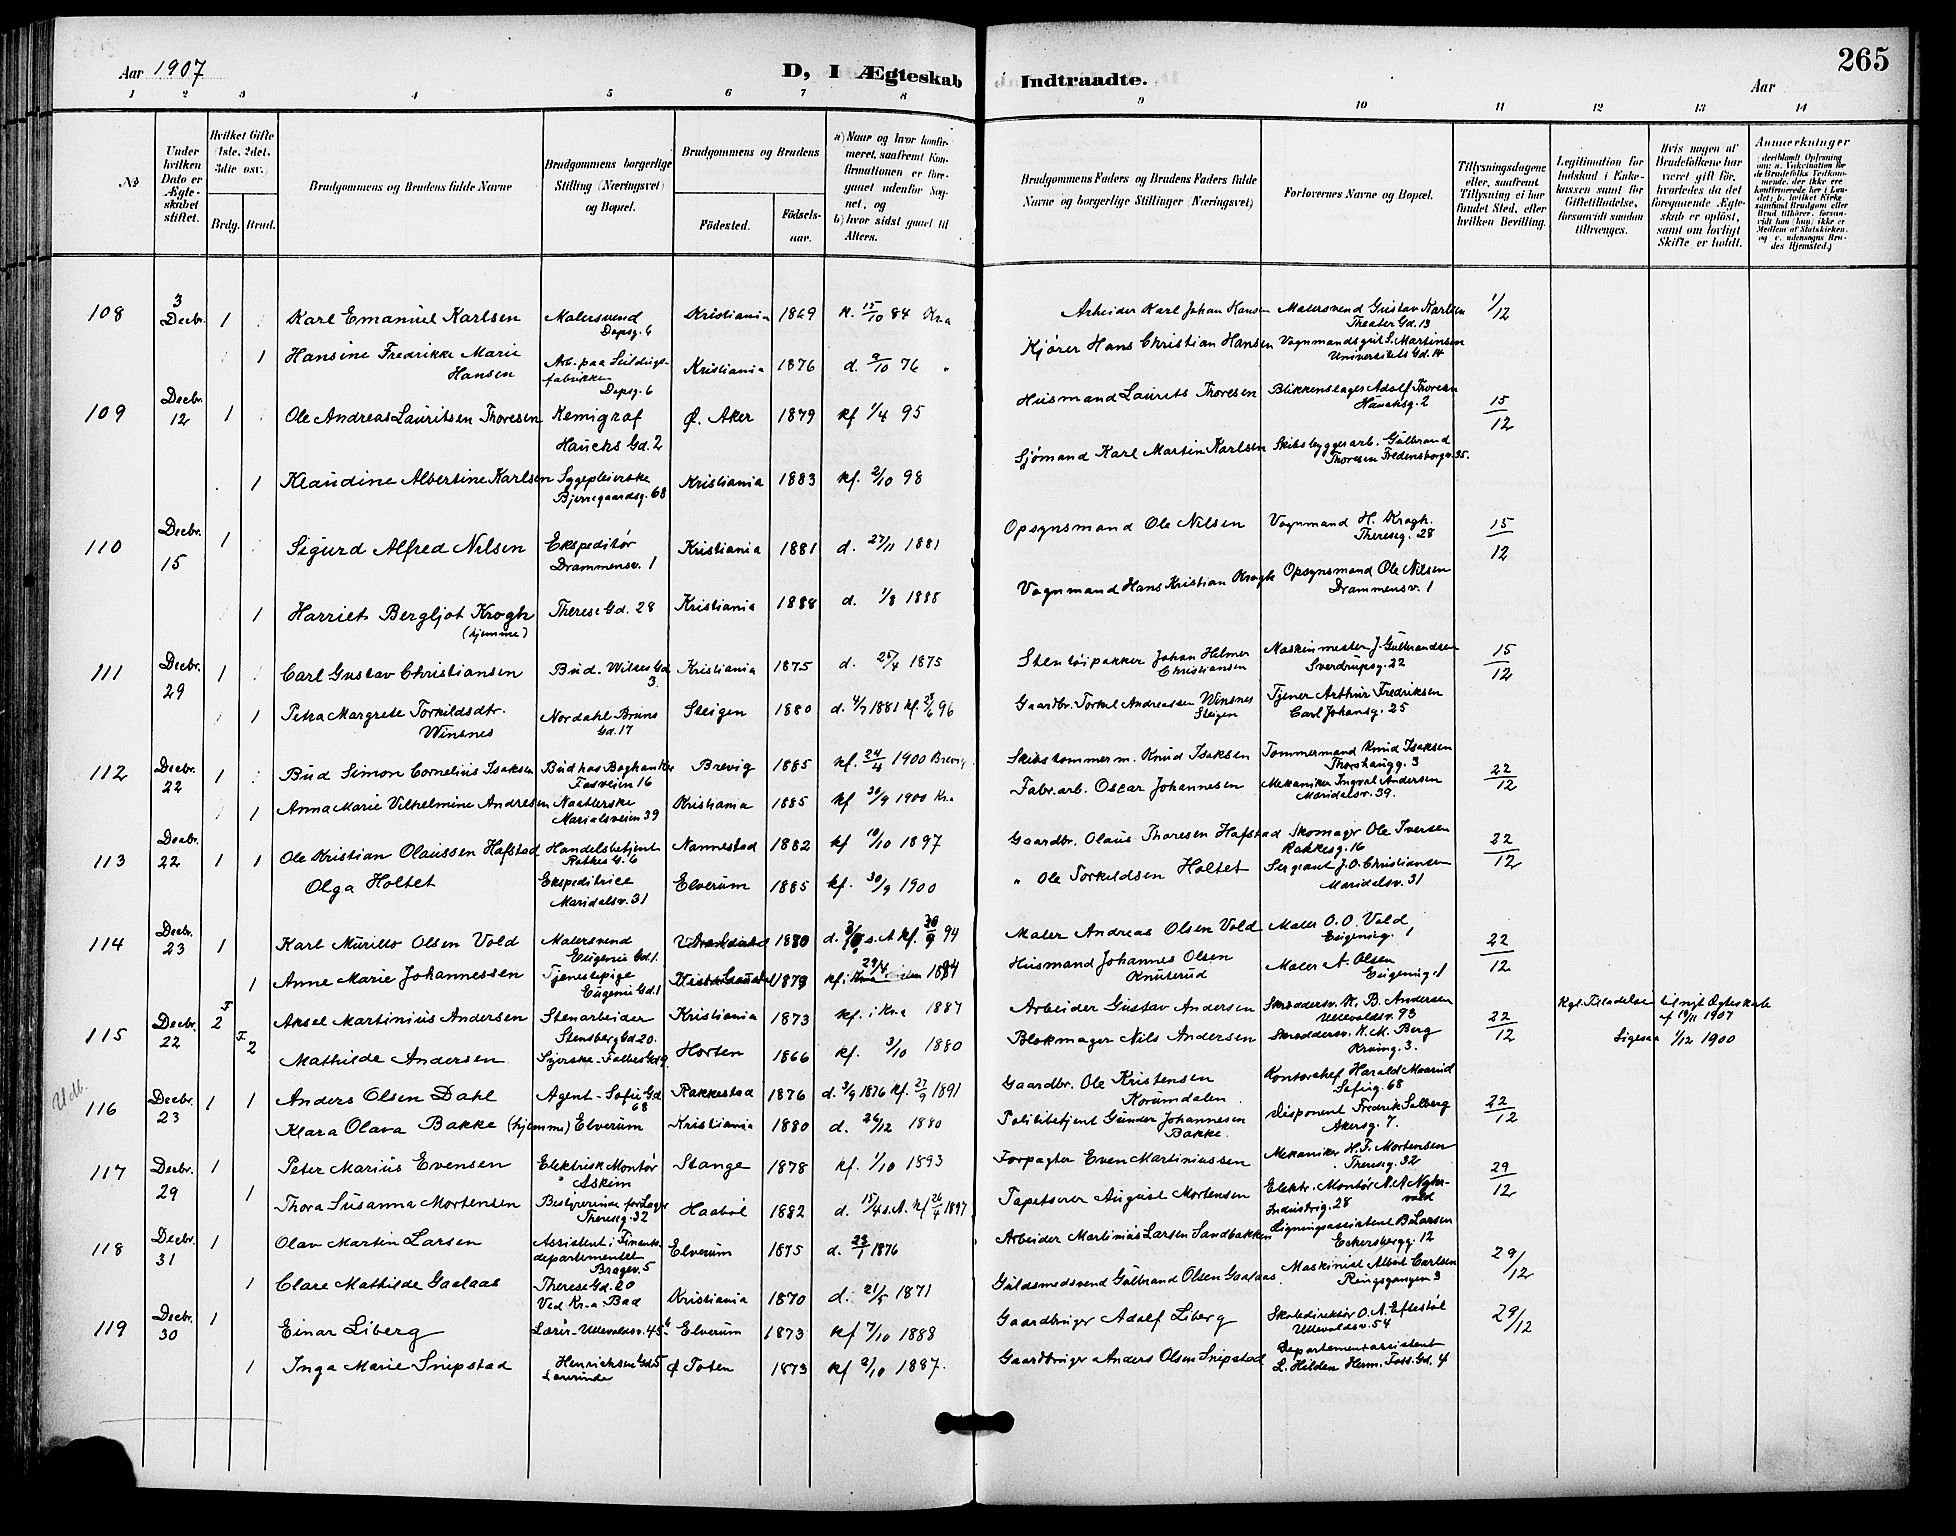 Aar 1907
D, I Ægteskab Indtraadte.
Aar
265
1 2 3 4 5 6 7 8 9 10 11 12 13 14
№
Under hvilken Dato er Ægteskabet stiftet.
Hvilket Gifte (1ste, 2det, 3die osv.)
Brdg. Brud.
Brudgommens og Brudens fulde Navne
Brudgommens borgerlige Stilling (Næringsvei) og Bopæl.
Brudgommens og Brudens
Födested.
Födselsaar.
a) Naar og hvor konfirmeret, saafremt Konfirmationen er foregaaet udenfor Sognet, og
b) hvor sidst gaaet til Alters.
Brudgommens Faders og Brudens Faders fulde Navne og borgerlige Stillinger (Næringsvei)
Forlovernes Navne og Bopæl.
Tillysningsdagene eller, saafremt Tillysning ei har fundet Sted, efter hvilken Bevilling.
Legitimation for Indskud i Enkekassen samt for Giftetilladelse, forsaavidt saadan tiltrænges.
Hvis nogen af Brudefolkene har været gift för, hvorledes da det foregaaende Ægteskab er oplöst, samt om lovligt Skifte er holdt.
Anmærkninger
108 3 Decbr. 1 Karl Emanuel Karlsen Malersvend Dopsg. 6 Kristiania 1869 k. 15/10 84 Kra Arbeider Karl Johan Hansen Malersvend Gustav Karlsen Theater Gd. 13 1/12
1 Hansine Fredrikke Marie Hansen Arb. paa Seildugsfabrikken Dopsg. 6 Kristiania 1876 d. 9/10 76 " Kjører Hans Christian Hansen Vognmandsgut S. Martinsen Universitets Gd. 14
109 Decbr. 12 1 Ole Andreas Lauritsen Thoresen Kemigraf Hauchs Gd. 2 Ø. Aker 1879 kf 1/4 95 Husmand Laurits Thoresen Blikkenslager Adolf Thoresen Hauchsg. 2 15/12
1 Klaudine Albertine Karlsen Sygepleierske Bjerregaardsg. 68 Kristiania 1883 kf. 2/10 98 Sjømand Karl Martin Karlsen Skibsbyggerarb. Gulbrand Thoresen Fredensborgv. 35.
110 Decbr. 15 1 Sigurd Alfred Nilsen Ekspeditør Drammensv. 1 Kristiania 1881 d. 27/11 1881 Opsynsmand Ole Nilsen Vognmand H. Krogh. Theresg. 28 15/12
1 Harriet Bergljot Krogh (hjemme) Therese Gd. 28 Kristiania 1888 d. 1/8 1888 Vognmand Hans Kristian Krogh Opsynsmand Ole Nilsen Drammensv. 1
111 Decbr. 29 1 Carl Gustav Christiansen Bud. Wilses Gd 3. Kristiania 1875 d. 25/4 1875 Stentøipakker Johan Helmer Christiansen Maskinmester J. Gulbrandsen Sverdrupsg. 22 15/12
1 Petra Margrete Torkildsdtr. Winsnes Nordahl Bruns Gd. 17 Steigen 1880 d. 4/7 1881 kf. 28/6 96 Gaardbr. Torkel Andreassen Winsnes Steigen Tjener Arthur Fredriksen Carl Johansg. 25
112 Decbr. 22 1 Bud Simon Cornelius Isaksen Bud hos Baghanker Fosveien 16 Brevig 1885 kf. 24/4 1900 Brevig Skibstømmerm. Knud Isaksen Tømmermand Knud Isaksen Thorshaugg. 3 22/12
1 Anna Marie Vilhelmine Andresen Naatlerske Marialsveien 39 Kristiania 1885 kf 30/9 1900 Kra Fabr. arb. Oscar Johannesen Mekaniker Ingval Andersen Maridalsv. 39.
113 Decbr. 22 1 1 Ole Kristian Olaussen Hafstad Handelsbetjent Ratkes G. 6 Nannestad 1882 kf 10/10 1897 Gaardbr. Olaus Thoresen Hafstad Skomager Ole Iversen Rakkesg. 16 22/12
Olga Holtet Ekspeditrice Maridalsv. 31 Elverum 1885 kf. 30/9 1900 " Ole Torkildsen Holtet Sergeant J. O. Christiansen Maridalsv. 31
114 Decbr. 23 1 Karl Murillo Olsen Vold Malersvend Eugenis Gd 1. 1880 94 Maler Andreas Olsen Vold Maler O. O. Vold Eugenisg. 1 22/12
1 Anne Marie Johannessen Tjenestepige Eugenis Gd. 1 1879 Husmand Johannes Olsen Knuterud Maler A. Olsen Eugenisg. 1
115 Decbr. 22 F. 2 Aksel Martinius Andersen Stenarbeider Stensberg Gd 20. Kristiania 1873 kf. i Kra 1887 Arbeider Gustav Andersen Skræddersv. K. B. Andersen Ullevoldsv. 93 22/12 Kgl. Tilladelse til nyt Ægteskab af 19/11 1907
F. 2 Mathilde Andersen Syerske - Falbes Gd 9. Horten 1866 kf. 3/10 1880 Blokmager Nils Andersen Skræddersv. K. M. Berg Krumg. 3. Ligesaa 1/12 1900
Udb.
116 Decbr. 23 1 1 Anders Olsen Dahl Agent - Sofies Gd 68 Rakkestad 1876 d. 3/9 1876 kf. 27/9 1891 Gaardbr. Ole Kristensen Korumdalen Kontorchef Harald Maarud Sofieg. 68 22/12
Klara Olava Bakke (hjemme) Elverum Kristiania 1880 d. 26/12 1880 Politibetjent Gunder Johannesen Bakke. Disponent Fredrik Salberg Akersg. 7.
117 Decbr. 29 1 Peter Marius Evensen Elektrisk Montør Askim Stange 1878 kf. 1/10 1893 Forpagter Even Martiniussen Mekaniker H. F. Mortensen Theresg. 32 29/12
1 Thora Susanna Mortensen Bestyrerinde for Lager Theresg. 32 Haabøl 1882 d. 15/4 s. A. kf 26/4 1897 Tapetserer August Mortensen Elektr. Montør N. A. Industrig. 28
118 Decbr. 31 1 Olav Martin Larsen Assistent i Finansdepartementet Bragev. 5 Elverum 1875 d. 23/1 1876 Arbeider Martinius Larsen Sandbakken Ligningsassistent B. Larsen Eckersbergg. 12 29/12
1 Clare Mathilde Gaalaas Therese Gd. 20 Ved Kr.a Bad Kristiania 1870 d. 21/5 1871 Guldsmedsvend Gulbrand Olsen Gaalaas Maskinist Albert Carlsen Ringsgangen 3
119 Decbr. 30 1 Einar Liberg Lærer - Ullevoldsv. 45 b Elverum 1873 kf 7/10 1888 Gaardbruger Adolf Liberg Skoledirektør O. A. Eftestøl Ullevoldsv. 54 29/12
1 Inga Marie Snipstad Henrichsens Gd 5 Lærerinde Ø Toten 1873 kf 2/10 1887. Gaardbruger Anders Olsen Snipstad Departementsassistent L. Hilden Herm. Foss. Gd. 4